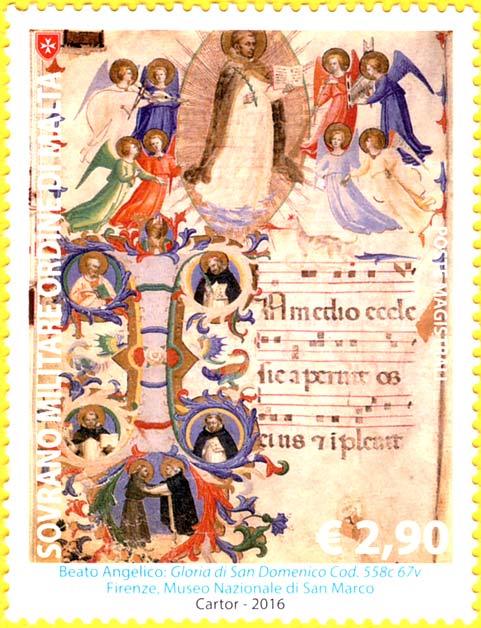 SOVRANO MILITARE ORDINE DI MALTA
POSTE MAGISTRALI
A medio eccle
sie aperuit os
eius ⁊ i pleuit
€ 2,90
Beato Angelico: Gloria di San Domenico Cod. 558c 67v
Firenze, Museo Nazionale di San Marco
Cartor - 2016